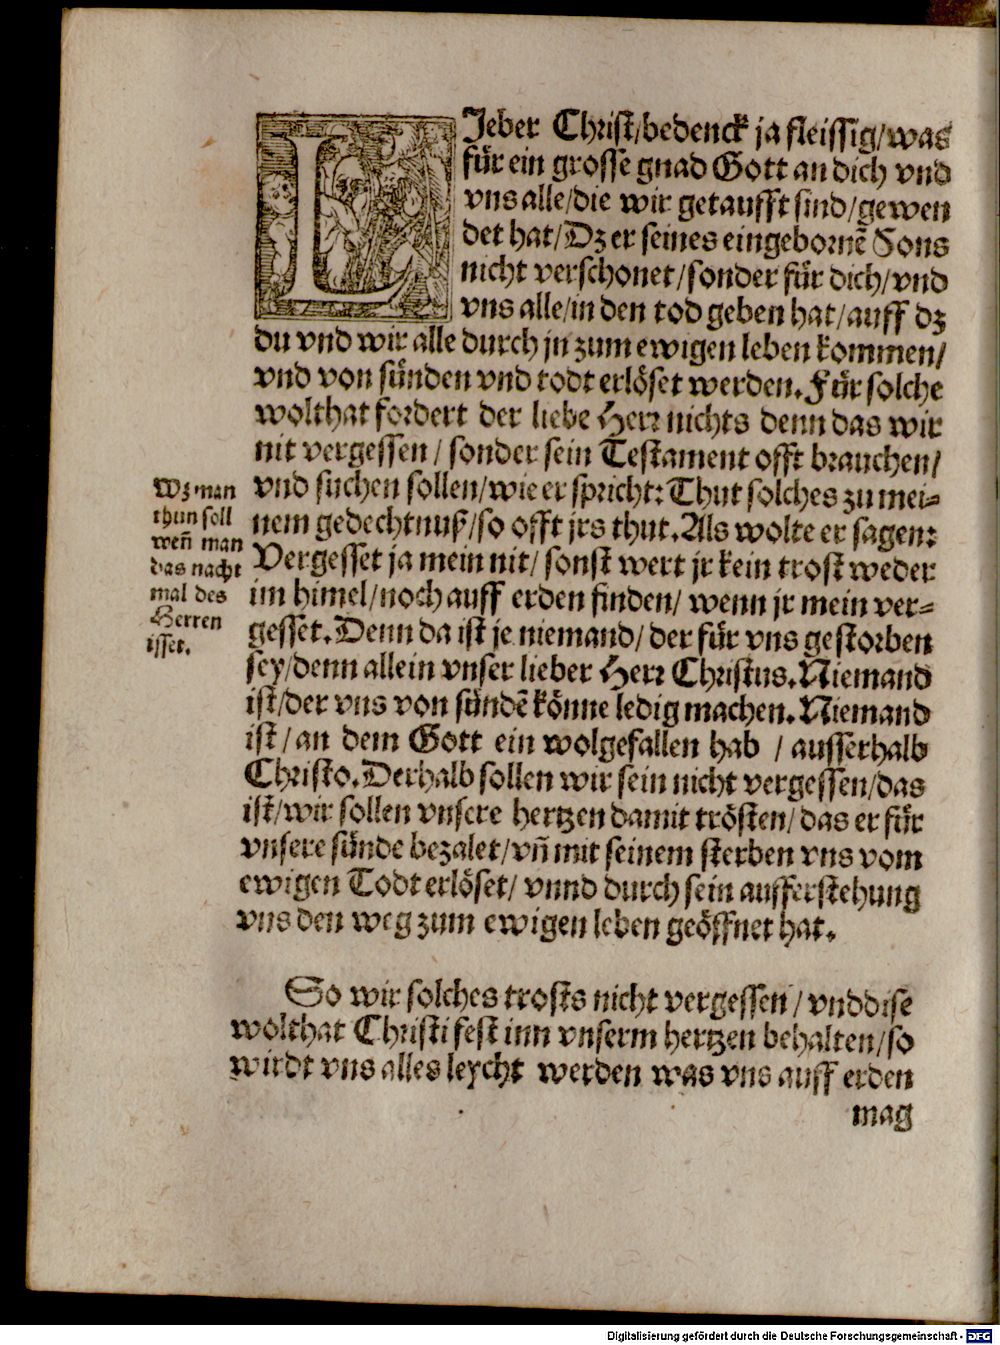 LIeber Christ/bedenck ja fleissig/was
für ein grosse gnad Gott an dich vnd
vns alle/die wir getaufft sind/gewen
det hat/Dz er seines eingebornē Sons
nicht verschonet/sonder für dich/vnd
vns alle/in den tod geben hat/auff dz
du vnd wir alle durch jn zum ewigen leben kommen/
vnd von sünden vnd todt erlöset werden. Für solche
wolthat fordert der liebe Herr nichts denn das wir
nit vergessen/sonder sein Testament offt brauchen/
vnd suchen sollen/wie er spricht: Thut solches zu mei-
nem gedechtnuß/so offt jrs thut. Als wolte er sagen:
Vergesset ja mein nit/sonst wert jr kein trost weder
im himel/noch auff erden finden/wenn jr mein ver-
gesset. Denn da ist je niemand/der für vns gestorben
sey/denn allein vnser lieber Herr Christus. Niemand
ist/der vns von sündē könne ledig machen. Niemand
ist/an dem Gott ein wolgefallen hab/ausserhalb
Christo. Derhalb sollen wir sein nicht vergessen/das
ist/wir sollen vnsere hertzen damit trösten/das er für
vnsere sünde bezalet/vñ mit seinem sterben vns vom
ewigen Todt erlöset/vnnd durch sein aufferstehung
vns den weg zum ewigen leben geöffnet hat.
Wz man
thun soll
weñ man
das nacht
mal des
Herren
isset.
So wir solches trosts nicht vergessen/vnd dise
wolthat Christi fest inn vnserm hertzen behalten/so
wirdt vns alles leycht werden was vns auff erden
mag
Digitalisierung gefördert durch die Deutsche Forschungsgemeinschaft - DFG